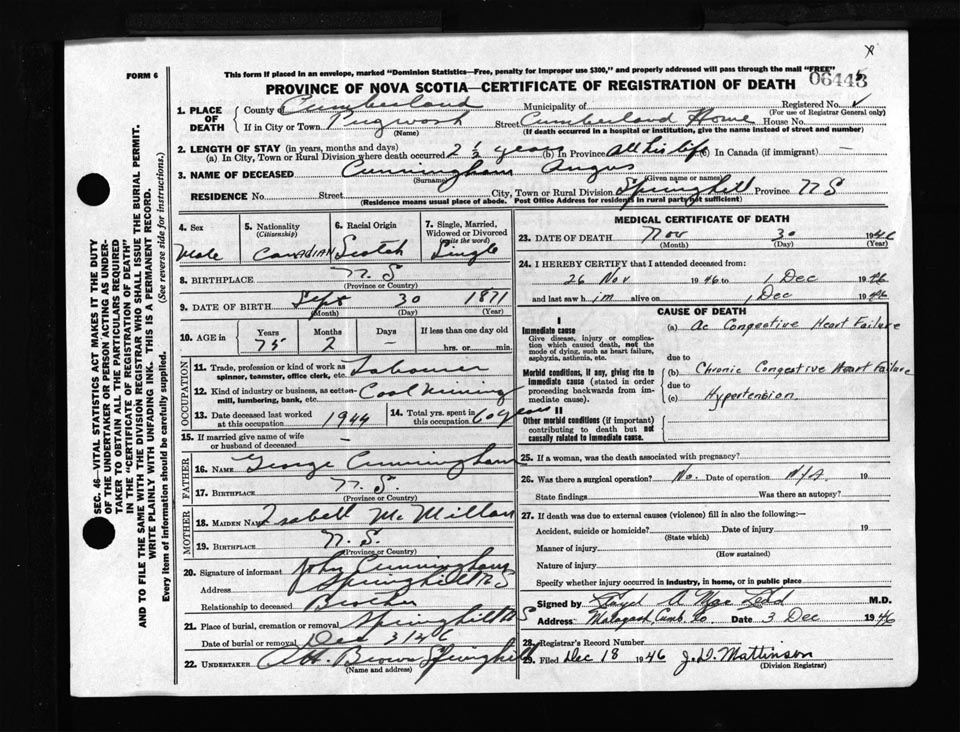 FORM 6
This form if placed in an envelope, marked "Dominion Statistics—Free, penalty for improper use $300," and properly addressed will pass through the mail "FREE"
PROVINCE OF NOVA SCOTIA—CERTIFICATE OF REGISTRATION OF DEATH
06445
Registered No.
(For use of Registrar General only)
1. PLACE OF DEATH
County of Cumberland Municipality of
If in City or Town Pugwash Street Cumberland Home House No.
(Name) (If death occurred in a hospital or institution, give the name instead of street and number)
2. LENGTH OF STAY (in years, months and days)
(a) In City, Town or Rural Division where death occurred 2 1/2 years (b) In Province All his life (c) In Canada (if immigrant) —
3. NAME OF DECEASED Cunningham Angus
(Surname) (Given name or names)
RESIDENCE No. Street City, Town or Rural Division Springhill Province N S
(Residence means usual place of abode. Post Office Address for residents in rural parts not sufficient)
4. Sex Male
5. Nationality (Citizenship) Canadian
6. Racial Origin Scotch
7. Single, Married, Widowed or Divorced (write the word) Single
8. BIRTHPLACE N. S
(Province or Country)
9. DATE OF BIRTH Sept 30 1871
(Month) (Day) (Year)
10. AGE in Years 75 Months 2 Days — If less than one day old hrs. or min.
OCCUPATION
11. Trade, profession or kind of work as spinner, teamster, office clerk, etc. Labourer
12. Kind of industry or business, as cotton-mill, lumbering, bank, etc. Coal Mining
13. Date deceased last worked at this occupation 1944
14. Total yrs. spent in this occupation 60 years
15. If married give name of wife or husband of deceased —
FATHER
16. NAME George Cunningham
17. BIRTHPLACE N. S.
(Province or Country)
MOTHER
18. MAIDEN NAME Isabell McMillan
19. BIRTHPLACE N. S.
(Province or Country)
20. Signature of informant John Cunningham
Address Springhill N S
Relationship to deceased Brother
21. Place of burial, cremation or removal Springhill N S
Date of burial or removal Dec 3 / 46
22. UNDERTAKER Brown Springhill
(Name and address)
MEDICAL CERTIFICATE OF DEATH
23. DATE OF DEATH Nov 30 1946
(Month) (Day) (Year)
24. I HEREBY CERTIFY that I attended deceased from:
26 Nov 1946 to 1 Dec 1946
and last saw him alive on 1 Dec 1946
CAUSE OF DEATH
I
Immediate cause
Give disease, injury or complication which caused death, not the mode of dying, such as heart failure, asphyxia, asthenia, etc.
(a) Ac Congestive Heart Failure
due to
Morbid conditions, if any, giving rise to immediate cause (stated in order proceeding backwards from immediate cause).
(b) Chronic Congestive Heart Failure
due to
(c) Hypertension.
II
Other morbid conditions (if important) contributing to death but not causally related to immediate cause.
25. If a woman, was the death associated with pregnancy?
26. Was there a surgical operation? No. Date of operation N/A. 19
State findings Was there an autopsy?
27. If death was due to external causes (violence) fill in also the following:—
Accident, suicide or homicide? Date of injury 19
(State which)
Manner of injury
(How sustained)
Nature of injury
Specify whether injury occurred in industry, in home, or in public place
Signed by M.D.
Address: Malagash Cumb. Co Date 3 Dec 1946
28. Registrar's Record Number
29. Filed Dec 18 1946 J.D. Mattinson
(Division Registrar)
SEC. 46—VITAL STATISTICS ACT MAKES IT THE DUTY
OF THE UNDERTAKER OR PERSON ACTING AS UNDERTAKER TO OBTAIN ALL THE PARTICULARS REQUIRED
IN THE "CERTIFICATE OF REGISTRATION OF DEATH"
AND TO FILE THE SAME WITH THE DIVISION REGISTRAR WHO SHALL ISSUE THE BURIAL PERMIT.
WRITE PLAINLY WITH UNFADING INK. THIS IS A PERMANENT RECORD.
Every item of information should be carefully supplied. (See reverse side for instructions.)